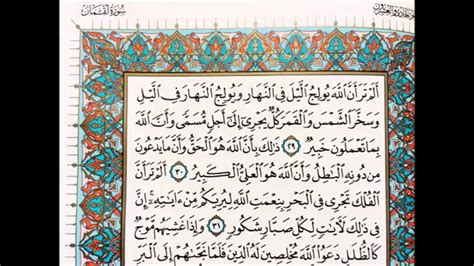 سُورَةُ لُقْمَان
الجزء الحادي والعشرون
أَلَمْ تَرَ أَنَّ ٱللَّهَ يُولِجُ ٱلَّيْلَ فِى ٱلنَّهَارِ وَيُولِجُ ٱلنَّهَارَ فِى ٱلَّيْلِ
وَسَخَّرَ ٱلشَّمْسَ وَٱلْقَمَرَ كُلٌّ يَجْرِىٓ إِلَىٰٓ أَجَلٍ مُّسَمًّى وَأَنَّ ٱللَّهَ
بِمَا تَعْمَلُونَ خَبِيرٌ ٢٩ ذَٰلِكَ بِأَنَّ ٱللَّهَ هُوَ ٱلْحَقُّ وَأَنَّ مَا يَدْعُونَ
مِن دُونِهِ ٱلْبَٰطِلُ وَأَنَّ ٱللَّهَ هُوَ ٱلْعَلِىُّ ٱلْكَبِيرُ ٣٠ أَلَمْ تَرَ أَنَّ
ٱلْفُلْكَ تَجْرِى فِى ٱلْبَحْرِ بِنِعْمَتِ ٱللَّهِ لِيُرِيَكُم مِّنْ ءَايَٰتِهِۦٓ ۚ إِنَّ
فِى ذَٰلِكَ لَءَايَٰتٍ لِّكُلِّ صَبَّارٍ شَكُورٍ ٣١ وَإِذَا غَشِيَهُم مَّوْجٌ
كَٱلظُّلَلِ دَعَوُا۟ ٱللَّهَ مُخْلِصِينَ لَهُ ٱلدِّينَ فَلَمَّا نَجَّىٰهُمْ إِلَى ٱلْبَرِّ